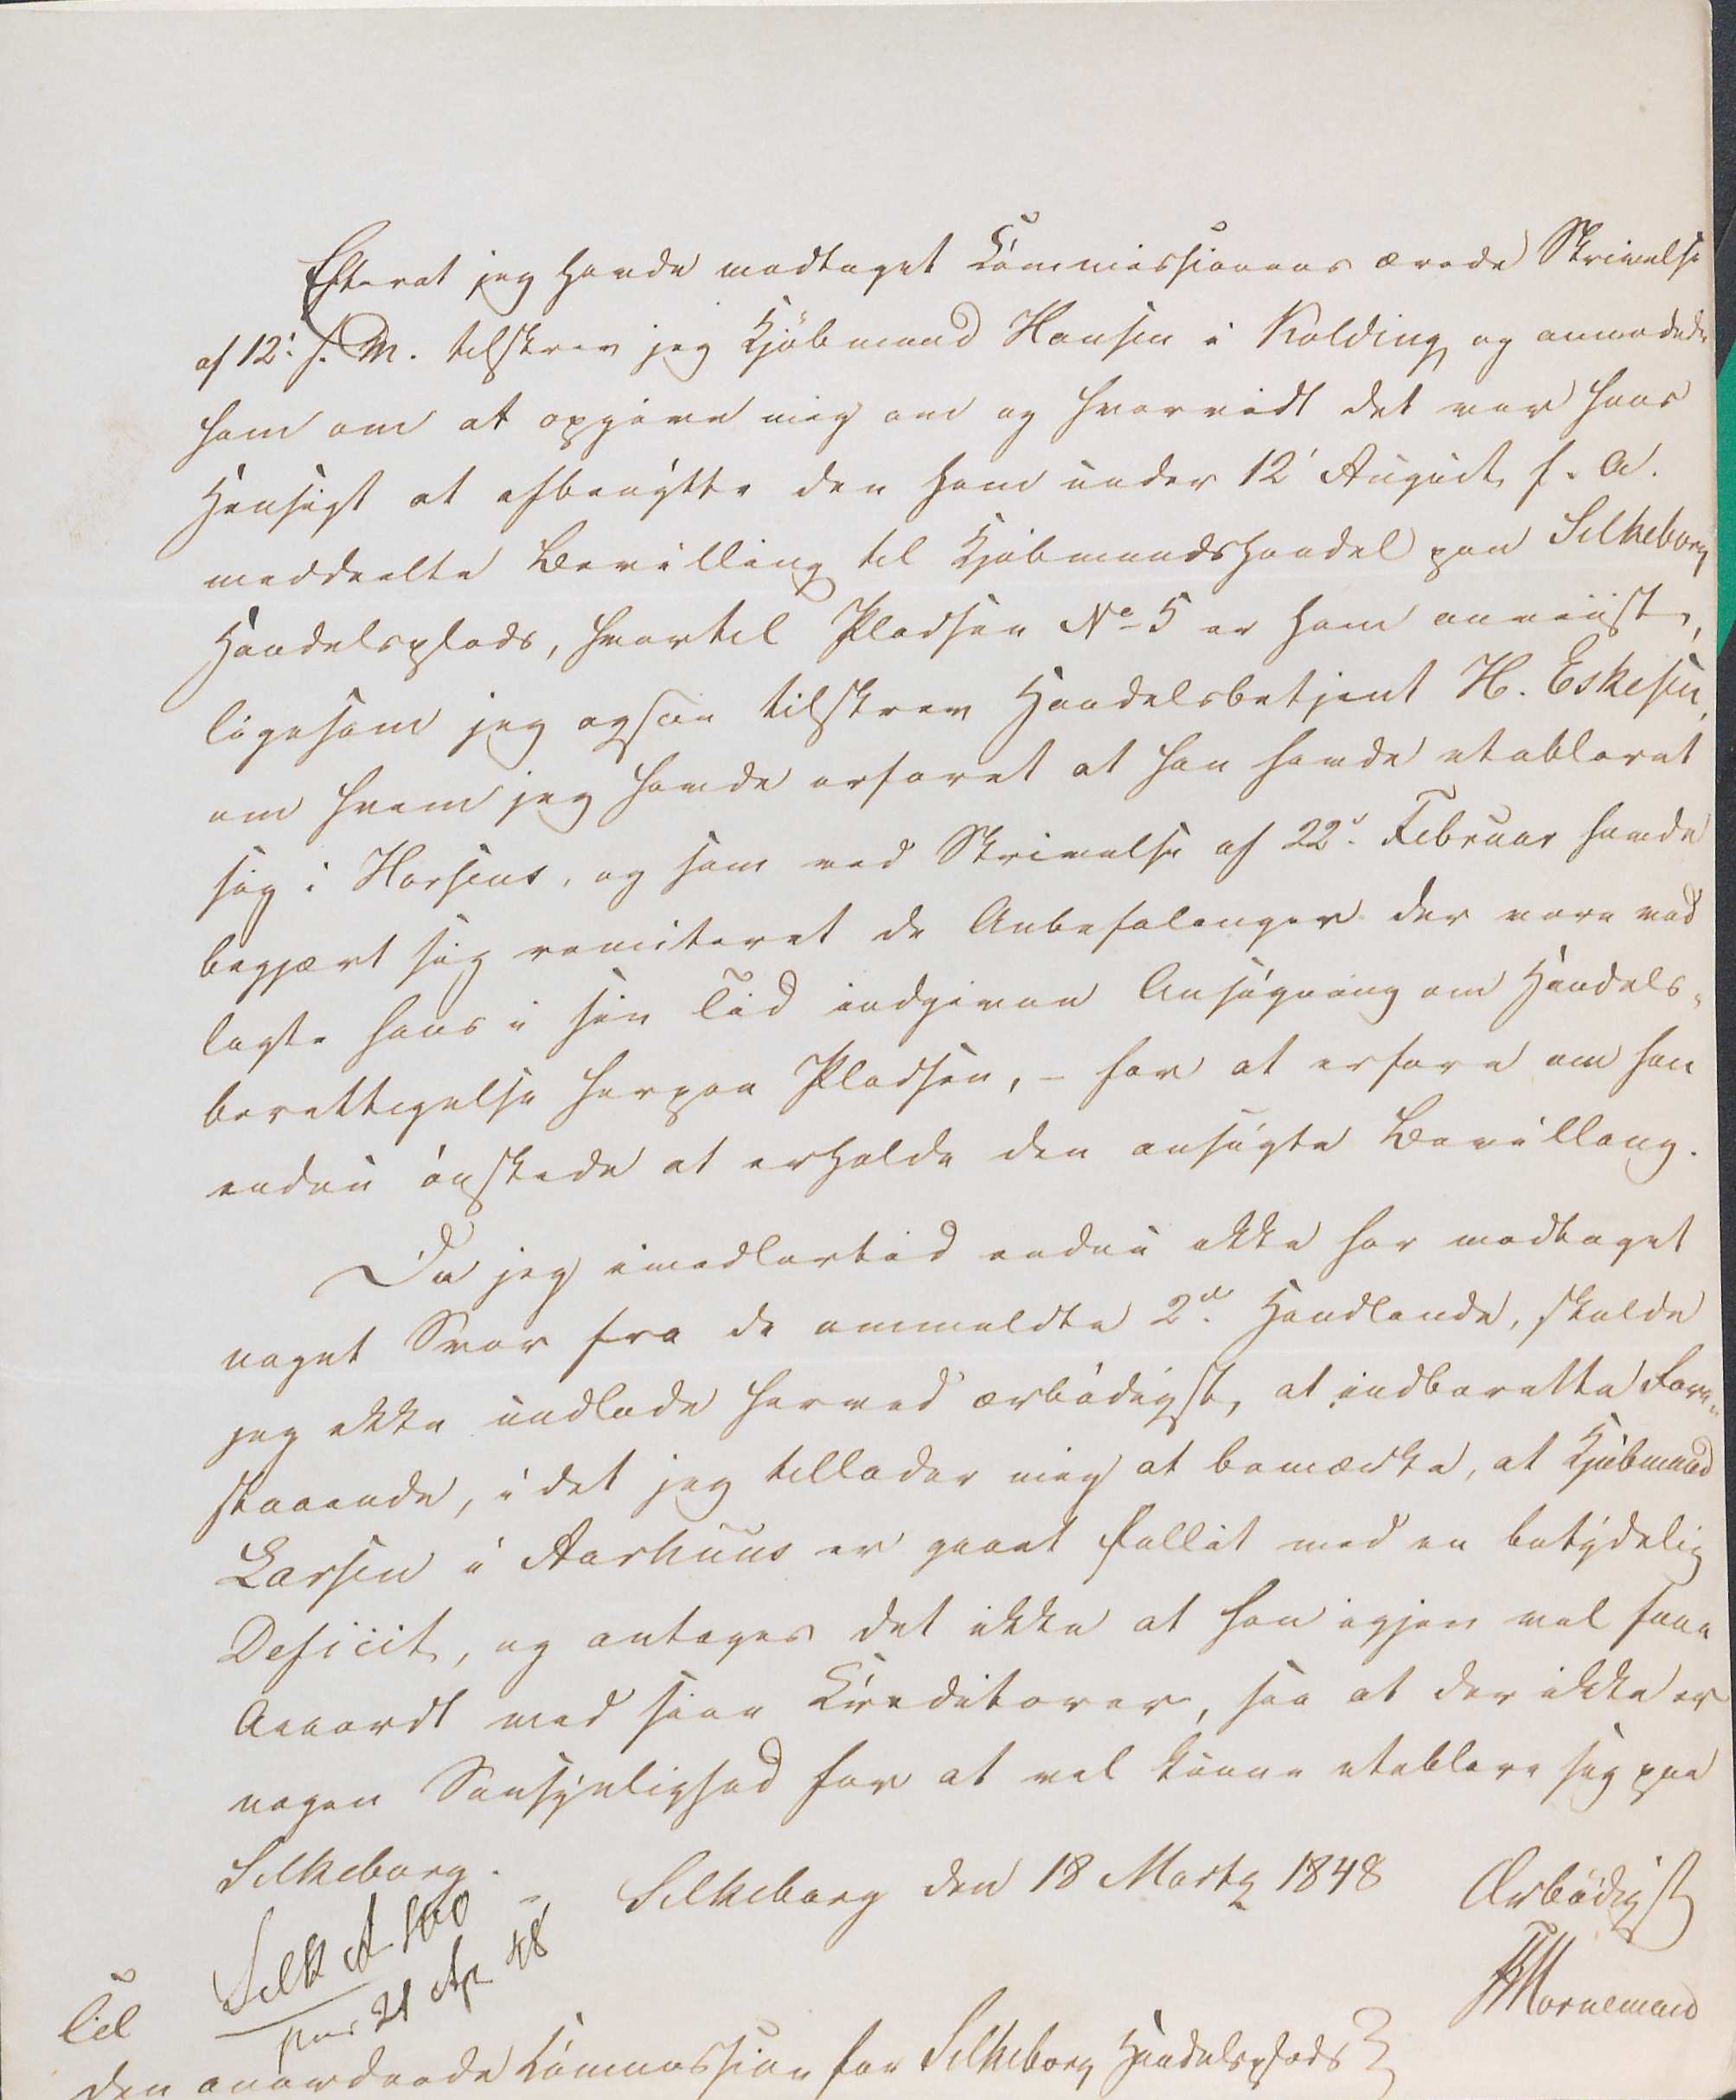 Efterat jeg havde modtaget Commissionens ærede Skrivelse
af 12' f. M. tilskrev jeg Kjøbmand Hansen i Kolding og anmodede
ham om at opgive mig om og hvorvidt det var hans
Hensigt at afbenytte den ham under 12' August f. A.
meddeelte Bevilling til Kjøbmandshandel paa Silkeborg
Handelsplads, hvortil Pladsen No 5 er ham anviist,
ligesom jeg ogsaa tilskrev Handelsbetjent H. Eskesen,
om hvem jeg havde erfaret at han havde etableret
sig i Horsens, og som ved Skrivelse af 22d. Februar havde
begjært sig remiteret de Anbefalinger der vare ved
lagte hans i sin Tid indgivne Ansøgning om Handels-
berettigelse herpaa Pladsen, - for at erfare om han
endnu ønskede at erholde den ansøgte Bevilling.
Da jeg imidlertid endnu ikke har modtaget
noget Svar fra de ommeldte 2de. Handlende, skulde
jeg ikke undlade herved ærbødigst, at indberette Fore-
staaende, i det jeg tillader mig at bemærke, at Kjøbmand
Larsen i Aarhuus er gaaet fallit med en betydelig
Deficit, og antages det ikke at han igjen vil faae
Accordt med sine Creditorer, saa at der ikke er
nogen Sandsynlighed for at vil kunne etablere sig paa
Silkeborg.
Silkeborg den 18 Martz 1848
Ærbødigst
Silk A 100
21 Ap 48
Til
den anordnede Commission for Silkeborg Handelsplads